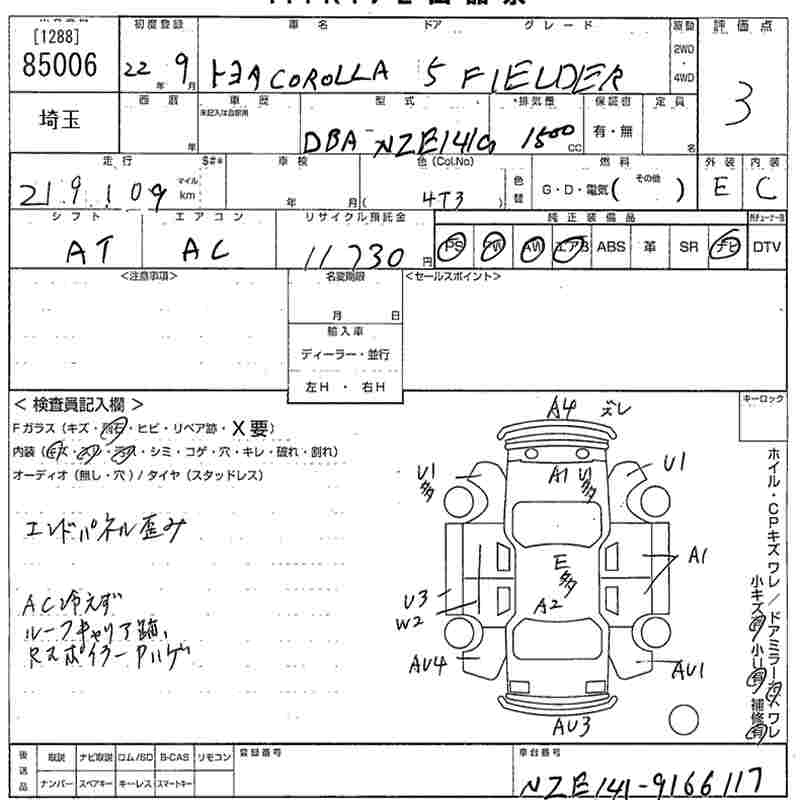 [1288]
85006
初度登録 車名 ドア グレード 駆動 評価点
22年 9月 トヨタ COROLLA 5 FIELDER 2WD・4WD 3
埼玉
西暦 車歴 型式 排気量 保証書 定員
年 未記入は自家用 DBA-NZE141G 1500cc 有・無 名
走行 $#* 車検 色(Col.No) 色替 燃料 外装 内装
219,109 マイル km 年 月 ( 4T3 ) G・D・電気( その他 ) E C
シフト エアコン リサイクル預託金 純正装備品
AT AC 11730円 PS PW AW エアB ABS 革 SR ナビ DTV
<注意事項> 名変期限 <セールスポイント>
月 日
輸入車
ディーラー・並行
左H・右H
<検査員記入欄> キーロック
Fガラス(キズ・飛石・ヒビ・リペア跡・X要)
内装(キズ・スレ・汚ス・シミ・コゲ・穴・キレ・破れ・割れ)
オーディオ(無し・穴)/タイヤ(スタッドレス)
エンドパネル歪み
AC冷えず
ルーフキャリア跡,
Rスポイラー Pハゲ
A4 ズレ
U1多 A1 U1多 U1
E多 A1
A2
U3
W2
AU4 AU1
AU3
ホイル・CPキズ ワレ/ドアミラーキズ ワレ
小キズ有 小U有 補修有
後送品 取説 ナビ取説 ロム/SD B-CAS リモコン 登録番号 車台番号
ナンバー スペアキー キーレス スマートキー NZE141-9166117